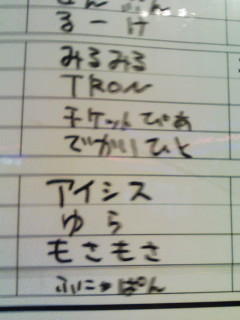 るーけ
みるみる
TRON
チケットぴあ
でかいひと
アイシス
ゆら
もさもさ
ふにゃぱん